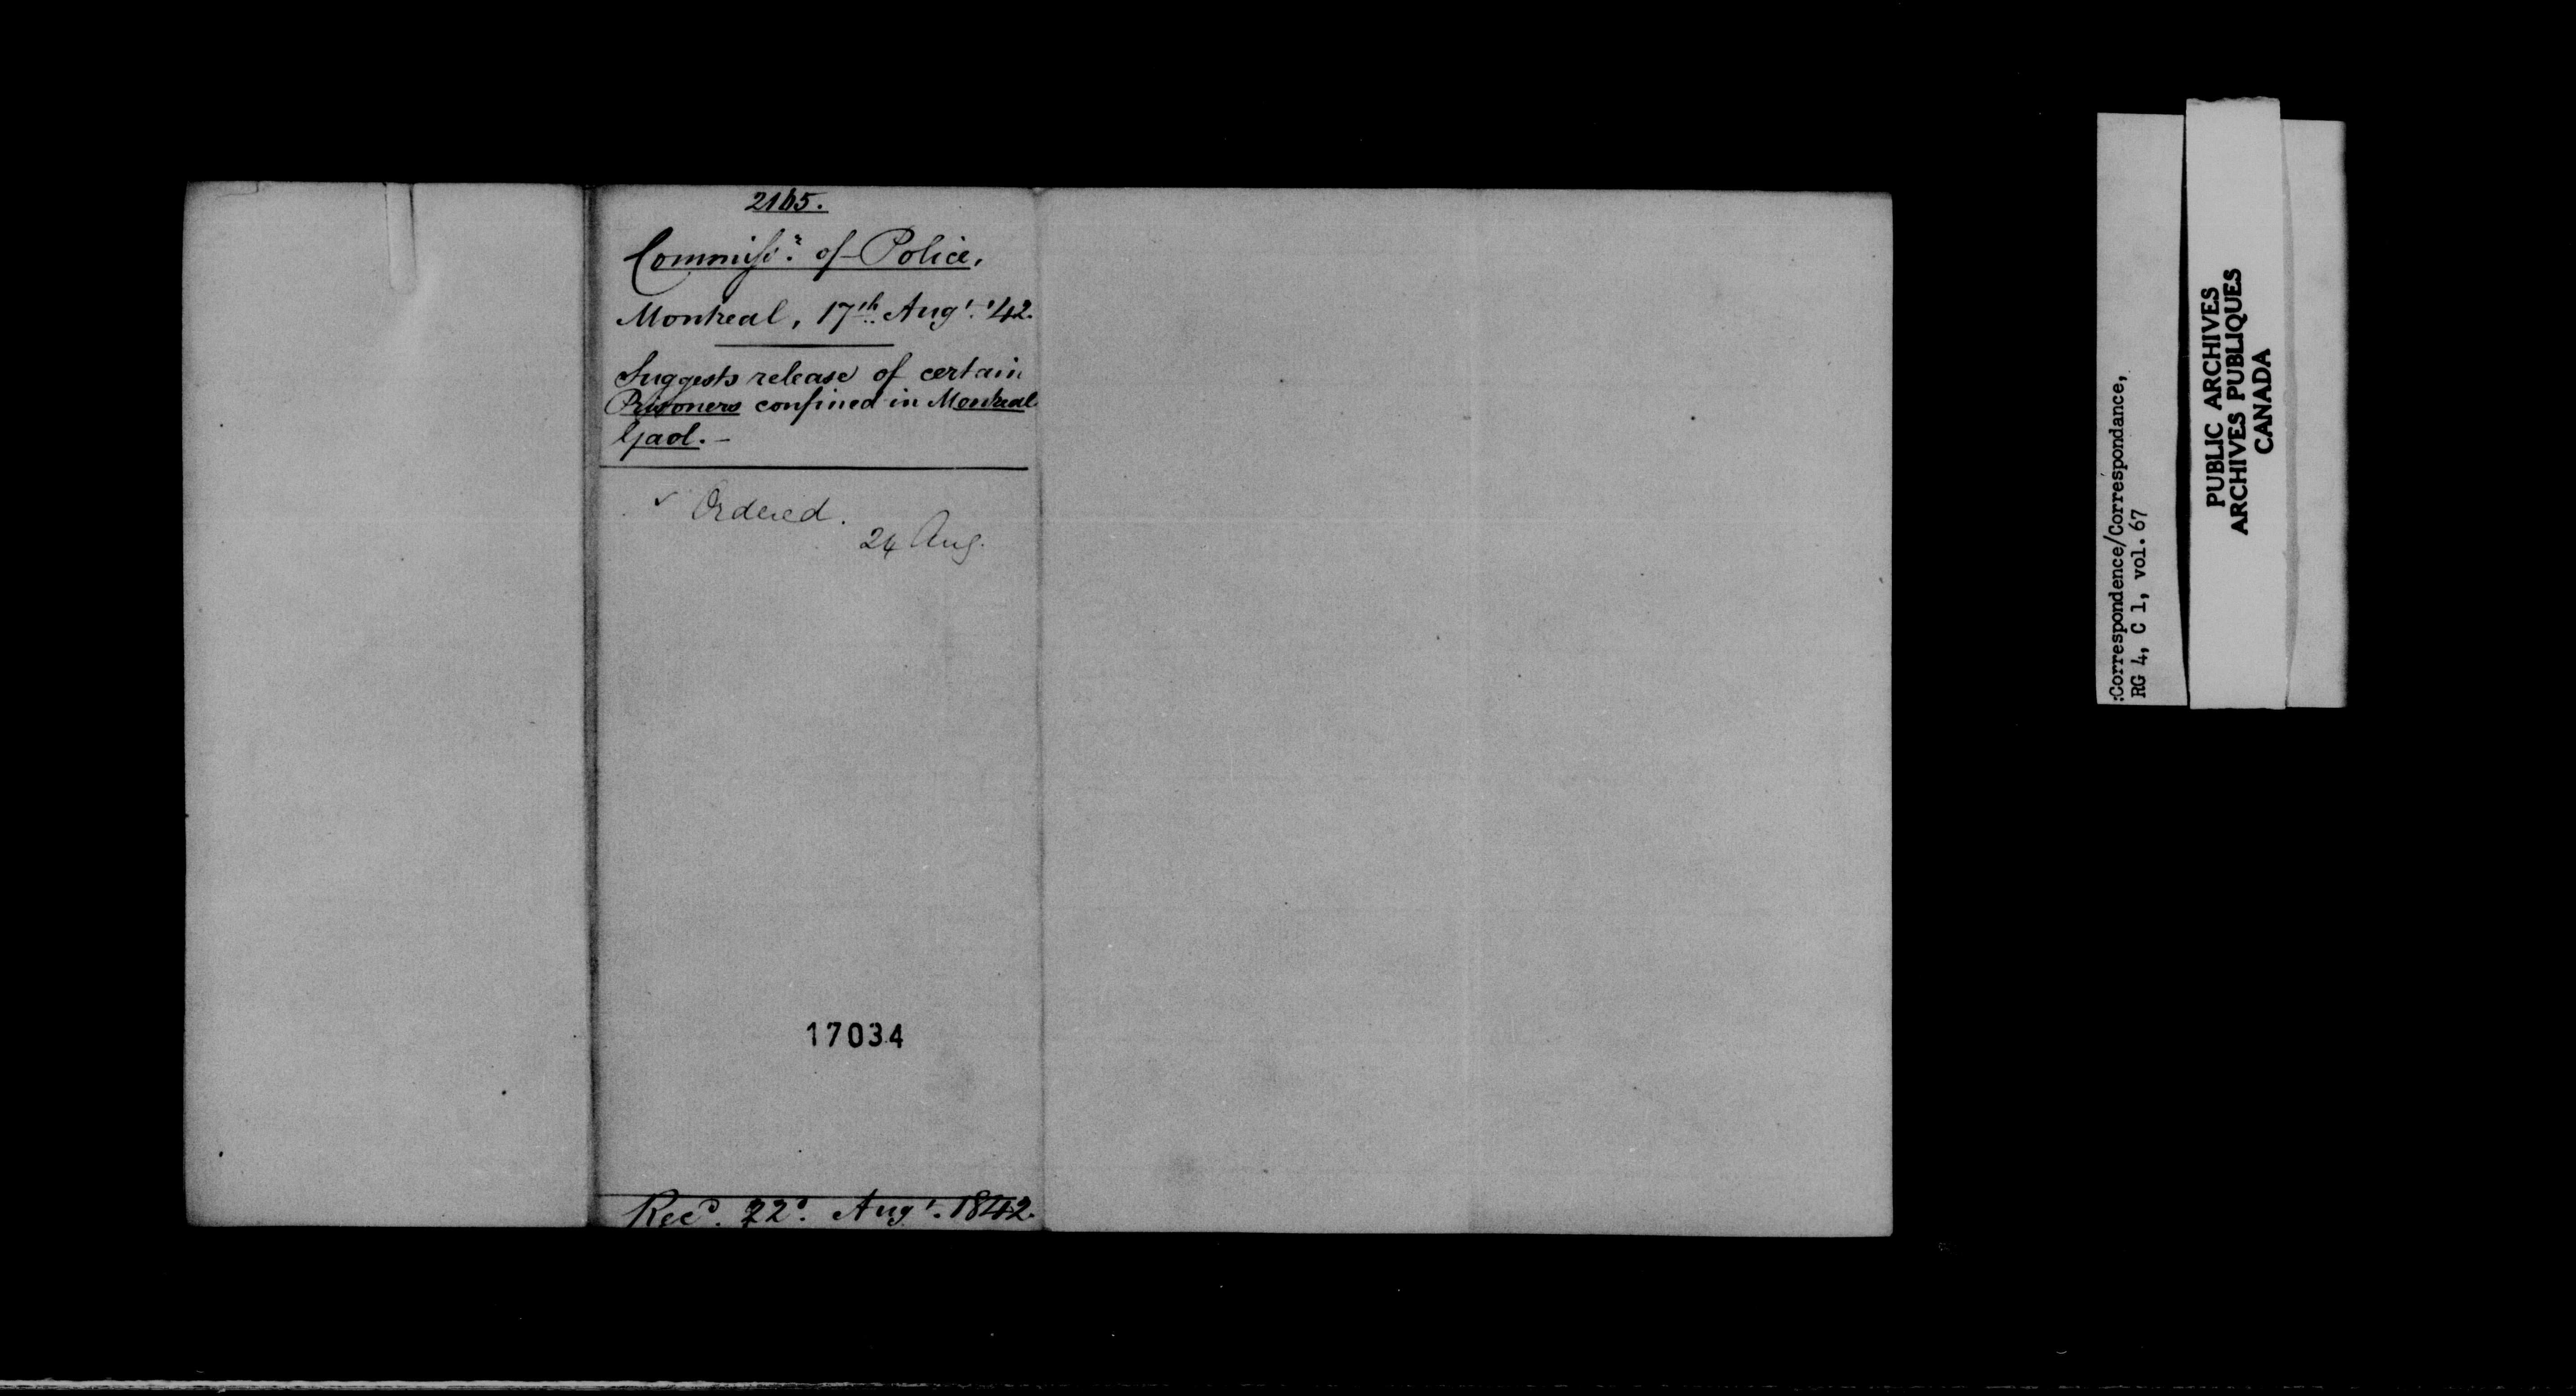 2165.
Commissr. of Police,
Montreal, 17th Augt. '42.
Suggests release of certain
Prisoners confined in Montreal
Gaol. –
✓ Ordered.
24 Aug.
17034
Recd. 22d. Augt. 1842.
:Correspondence/Correspondance,
RG 4, C 1, vol. 67
PUBLIC ARCHIVES
ARCHIVES PUBLIQUES
CANADA